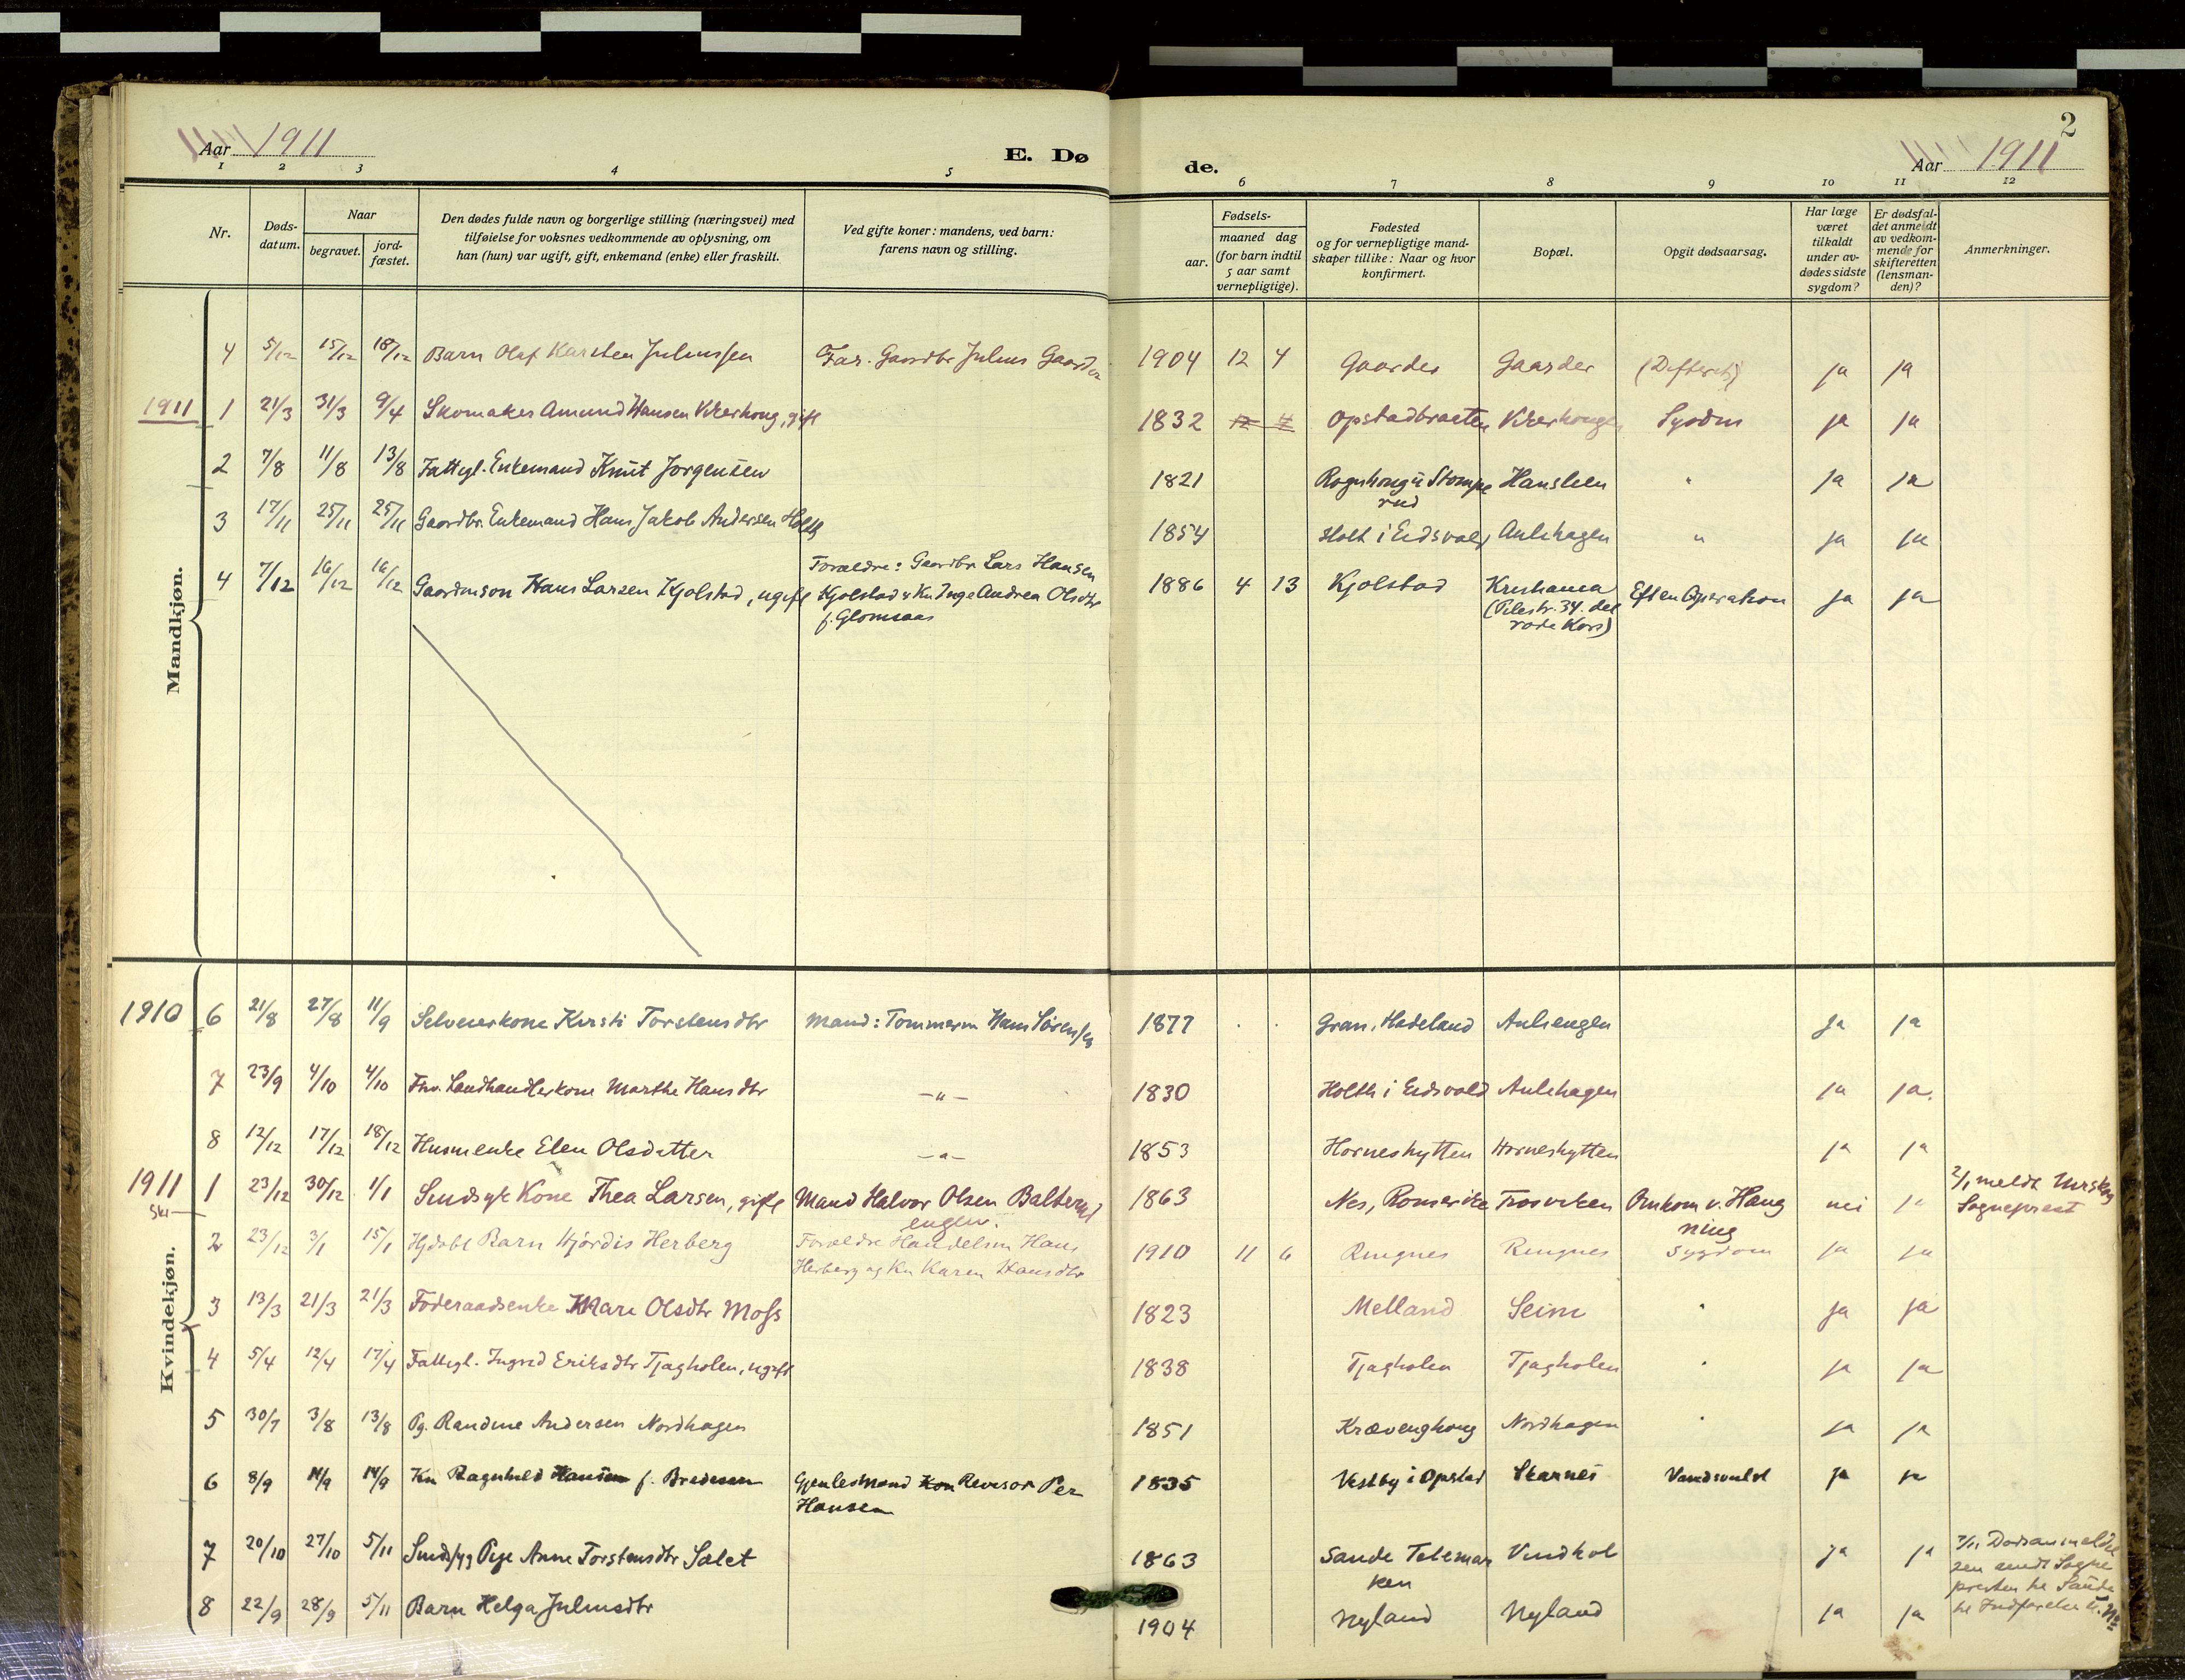 2
Aar 1911 E. Dø de. Aar 1911
1 2 3 4 5 6 7 8 9 10 11 12
Nr. Døds-datum. Naar begravet. jord-fæstet. Den dødes fulde navn og borgerlige stilling (næringsvei) med tilføielse for voksnes vedkommende av oplysning, om han (hun) var ugift, gift, enkemand (enke) eller fraskilt. Ved gifte koner: mandens, ved barn: farens navn og stilling. Fødsels- aar. maaned dag (for barn indtil 5 aar samt vernepligtige). Fødested og for vernepligtige mand-skaper tillike: Naar og hvor konfirmert. Bopæl. Opgit dødsaarsag. Har læge været tilkaldt under av-dødes sidste sygdom? Er dødsfal-det anmeldt av vedkom-mende for skifteretten (lensman-den)? Anmerkninger.
Mandkjøn.
4 5/12 15/12 18/12 Barn Olaf Karsten Juliussen Far. Gaardbr Julius Gaarder 1904 12 4 Gaarder Gaarder (Difterit) ja ja
1911 1 21/3 31/3 9/4 Skomaker Amund Hansen, gift 1832 12 4 Opstadbraaten Sygdm ja ja
2 7/8 11/8 13/8 Fattigl. Enkemand Knut Jorgensen 1821 Stompe Hanslien " ja ja
rud
3 17/11 25/11 25/11 Gaardbr. Enkemand Hans Jakob Andersen Holth 1854 Holt i Eidsvold Aulihagen " ja ja
4 7/12 16/12 16/12 Gaardmson Hans Larsen Kjolstad, ugift Foræeldre: Gaardbr Lars Hansen 1886 4 13 Kjolstad Kristiania Efter Operation ja ja
Kjolstad & Ku Inge Andrea Olsdtr (Pilestr. 34. det
f. Glomsaas røde Kors)
Kvindekjøn.
1910 6 21/8 27/8 11/9 Selveierkone Kirsti Torstensdtr Mand: Tommerm Hans Sørensen 1877 Gran, Hadeland Auliengen ja ja
7 23/9 4/10 4/10 Fhv. Landhandlerkone Marthe Hansdtr –"– 1830 Holth i Eidsvold Aulihagen ja ja.
8 12/12 17/12 18/12 Husmenke Elen Olsdatter –"– 1853 Horneshytten Horneshytten ja ja
1911 1 23/12 30/12 1/1 Sindsyk Kone Thea Larsen, gift Mand Halvor Olsen 1863 Nes, Romerike Trosviken Omkom v. Hæng nei ja 2/1 meldt Urskog
engen. ning Sogneprest
2 23/12 3/1 15/1 Barn Hjørdis Herberg Foreldre Handelsm Hans 1910 11 6 Ringnes Ringnes Sygdom ja ja
Herberg og Ku Karen Hansdtr
3 13/3 21/3 21/3 Foderaadsenke Mari Olsdtr Moss 1823 Melland Seim " ja ja
4 5/4 12/4 17/4 Fattigl. Ingrid Eriksdtr Tjagholen, ugift 1838 Tjagholen Tjagholen " ja ja
5 30/7 3/8 13/8 Pg. Randine Andersen Nordhagen 1851 Krævenghoug Nordhagen " ja ja
6 8/9 14/9 14/9 Ku Ragnhild Hansen f. Bredesen Gjenlev Mand Kon Revisor Per 1835 Vestby i Opstad Skarnes ja ja
Hansen
7 20/10 27/10 5/11 Sindssyg Pige Anne Torstensdtr Solet 1863 Sande Telemar Vindhol ja ja 7/11 Dødsanmeldel
ken sen sendt Sogne
presten til Sande
8 22/9 28/9 5/11 Barn Helga Juliusdtr 1904 Nyland Nyland ja ja til Indførelse